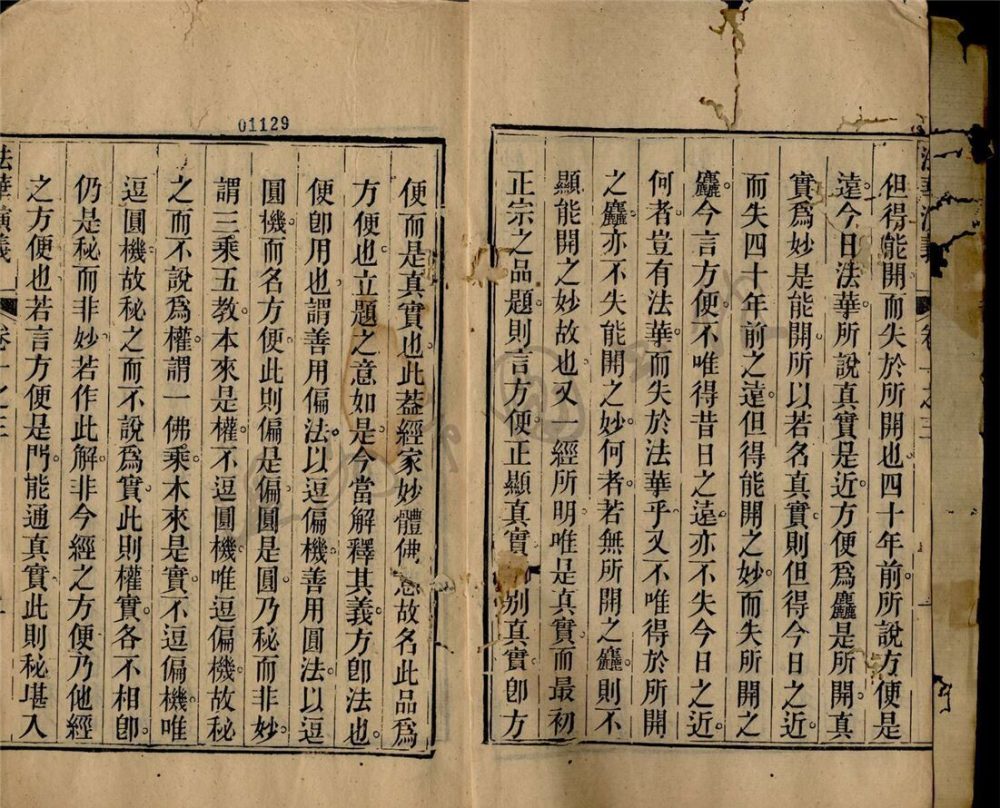 01129
但得能開而失於所開也四十年前所說方便是
遠今日法華所說真實是近方便爲麤是所開真
實爲妙是能開所以若名真實則但得今日之近
而失四十年前之遠但得能開之妙而失所開之
麤今言方便不唯得昔日之遠亦不失今日之近
何者豈有法華而失於法華乎又不唯得於所開
之麤亦不失能開之妙何者若無所開之麤則不
顯能開之妙故也又一經所明唯是真實而最初
正宗之品題則言方便正顯真實別真實卽方
便而是真實也此葢經家妙體佛意故名此品爲
方便也立題之意如是今當解釋其義方卽法也
便卽用也謂善用偏法以逗偏機善用圓法以逗
圓機而名方便此則偏是偏圓是圓乃秘而非妙
謂三乘五教本來是權不逗圓機唯逗偏機故秘
之而不說爲權謂一佛乘木來是實不逗偏機唯
逗圓機故秘之而不說爲實此則權實各不相卽
仍是秘而非妙若作此解非今經之方便乃他經
之方便也若言方便是門能通真實此則秘堪入
法華演義 卷一之三